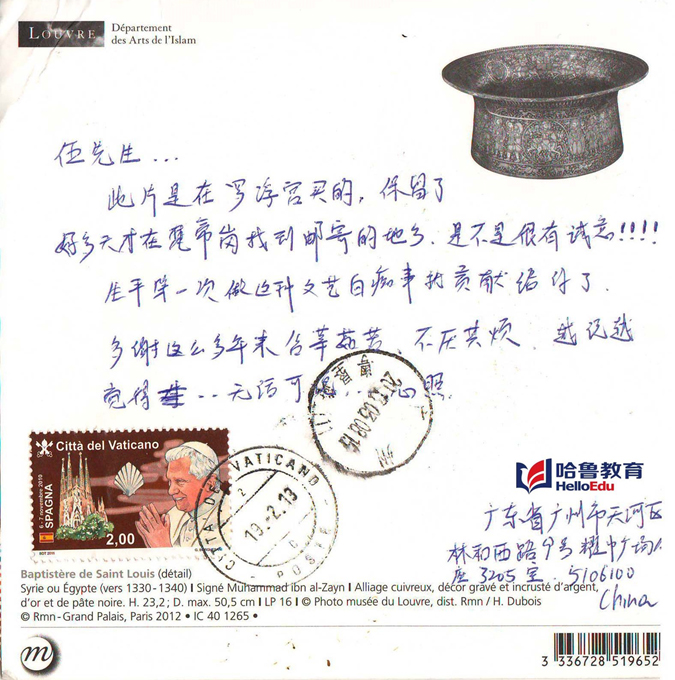 LOUVRE
Département
des Arts de l'Islam
伍先生...
此片是在罗浮宫买的,保留了
好多天才在梵帝岗找到邮寄的地方.是不是很有诚意!!!!
生平第一次做这种文艺白痴事就贡献给你了.
多谢这么多年来含辛茹苦、不厌其烦, 越说越
觉得..无话可
心照
Città del Vaticano
6-7 novembre 2010
SPAGNA
2,00
CITTÀ DEL VATICANO
19.2.13
POSTE
哈鲁教育
HelloEdu
广东省广州市天河区
林和西路9号耀中广场
座3205室. 5106100
China
Baptistère de Saint Louis (détail)
Syrie ou Égypte (vers 1330-1340) I Signé Muhammad ibn al-Zayn I Alliage cuivreux, décor gravé et incrusté d'argent,
d'or et de pâte noire. H. 23,2 ; D. max. 50,5 cm I LP 16 I © Photo musée du Louvre, dist. Rmn / H. Dubois
© Rmn-Grand Palais, Paris 2012 • IC 40 1265 •
m
3 336728 519652